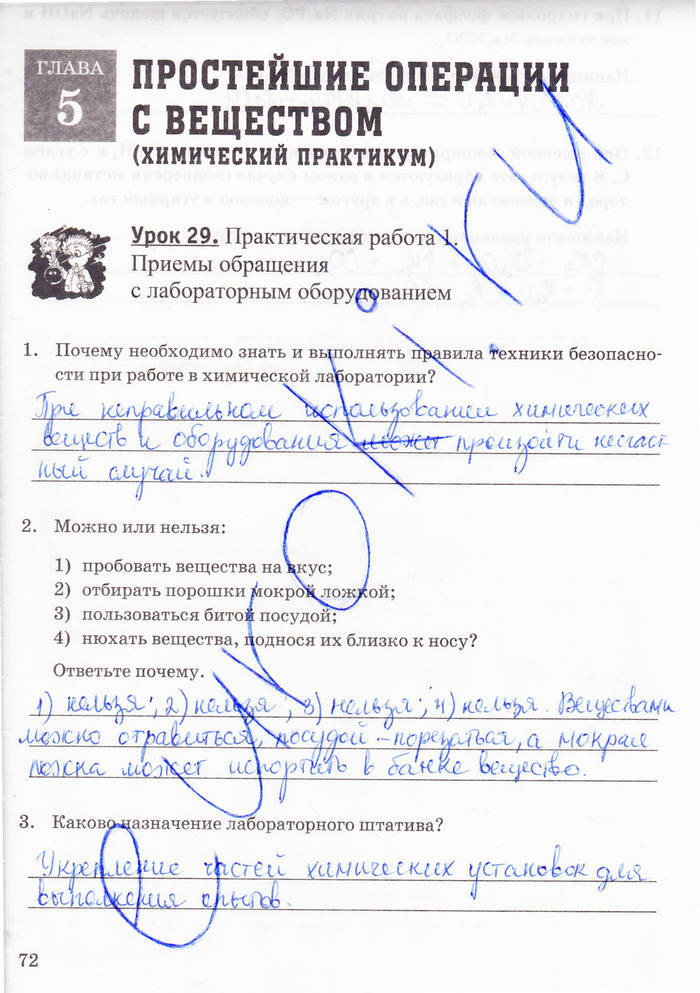 ГЛАВА
5
ПРОСТЕЙШИЕ ОПЕРАЦИИ
С ВЕЩЕСТВОМ
(ХИМИЧЕСКИЙ ПРАКТИКУМ)
Урок 29. Практическая работа 1.
Приемы обращения
с лабораторным оборудованием
1. Почему необходимо знать и выполнять правила техники безопасно-
сти при работе в химической лаборатории?
При неправильном использовании химических
веществ и оборудования может произойти несчаст
ный случай.
2. Можно или нельзя:
1) пробовать вещества на вкус;
2) отбирать порошки мокрой ложкой;
3) пользоваться битой посудой;
4) нюхать вещества, поднося их близко к носу?
Ответьте почему.
1) нельзя; 2) нельзя; 3) нельзя; 4) нельзя. Веществами
можно отравиться, посудой – порезаться, а мокрая
ложка может испортить в банке вещество.
3. Каково назначение лабораторного штатива?
Укрепление частей химических установок для
выполнения опытов.
72